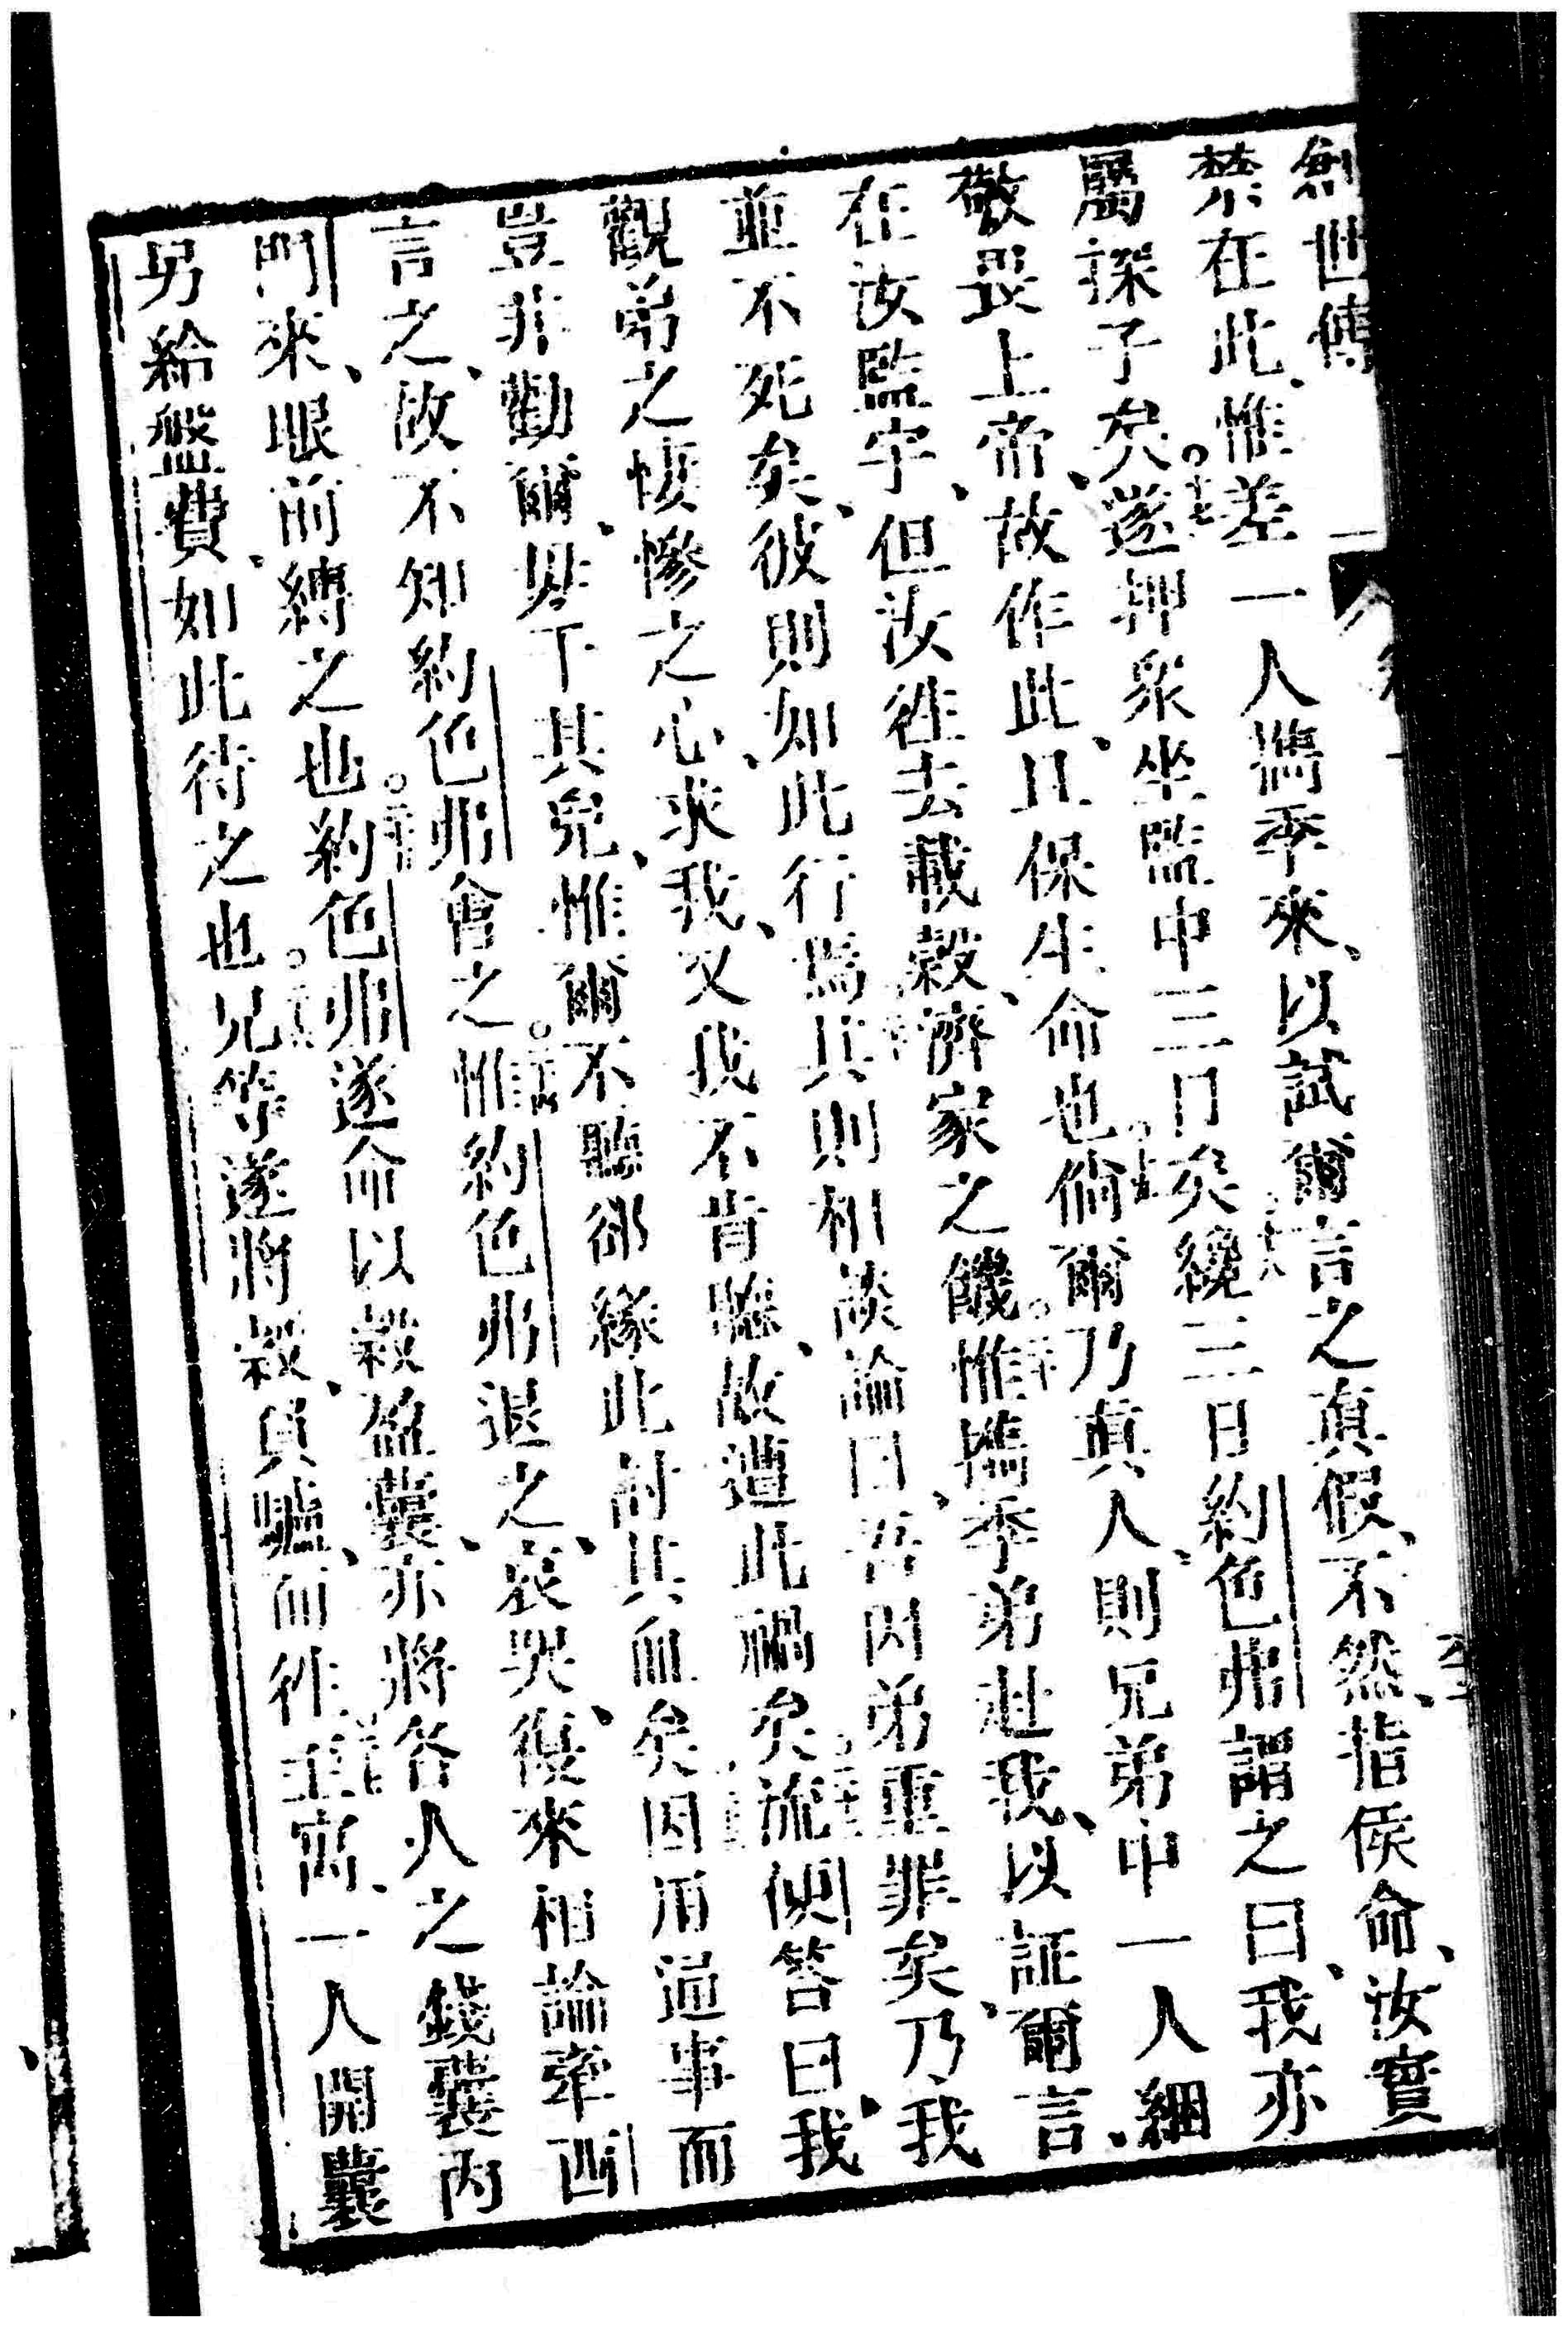 創世傳
禁在此、惟差一人攜季來、以試爾言之真假、不然、指侯命、汝實
屬探子矣。遂押衆坐監中三日矣。纔三日約色弗謂之曰、我亦
敬畏上帝、故作此、且保生命也。倘爾乃真人、則兄弟中一人綑
在汝監牢、但汝徃去載穀、濟家之饑。惟攜季弟赴我、以証爾言、
並不死矣、彼則如此行爲、其則相談論曰、吾因弟重罪矣、乃我
觀弟之悽慘之心、求我、又我不肯聽、故遭此禍矣。流便答曰、我
豈非勸爾、毋干其兒、惟爾不聽、卻緣此討其血矣。因用逼事而
言之、故不知約色弗會之。惟約色弗退之、哀哭、復來相論牽西
門來、眼前縛之也。約色弗遂命以穀盈囊、亦將各人之錢囊內
另給盤費、如此待之也。兄等遂將穀、負驢、而徃。至寓、一人開囊